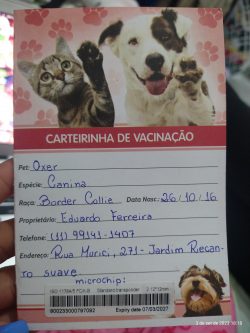 CARTEIRINHA DE VACINAÇÃO
Pet: Oxer
Espécie: Canina
Raça: Border Collie Data Nasc.: 26/10/16
Proprietário: Eduardo Ferreira
Telefone: (11) 99141-1407
Endereço: Rua Murici, 271- Jardim Recan-
to suave
microchip:
Standard transponder 2.12*12mm
Expiry date 07/03/2027
3 de set de 2023 18:19